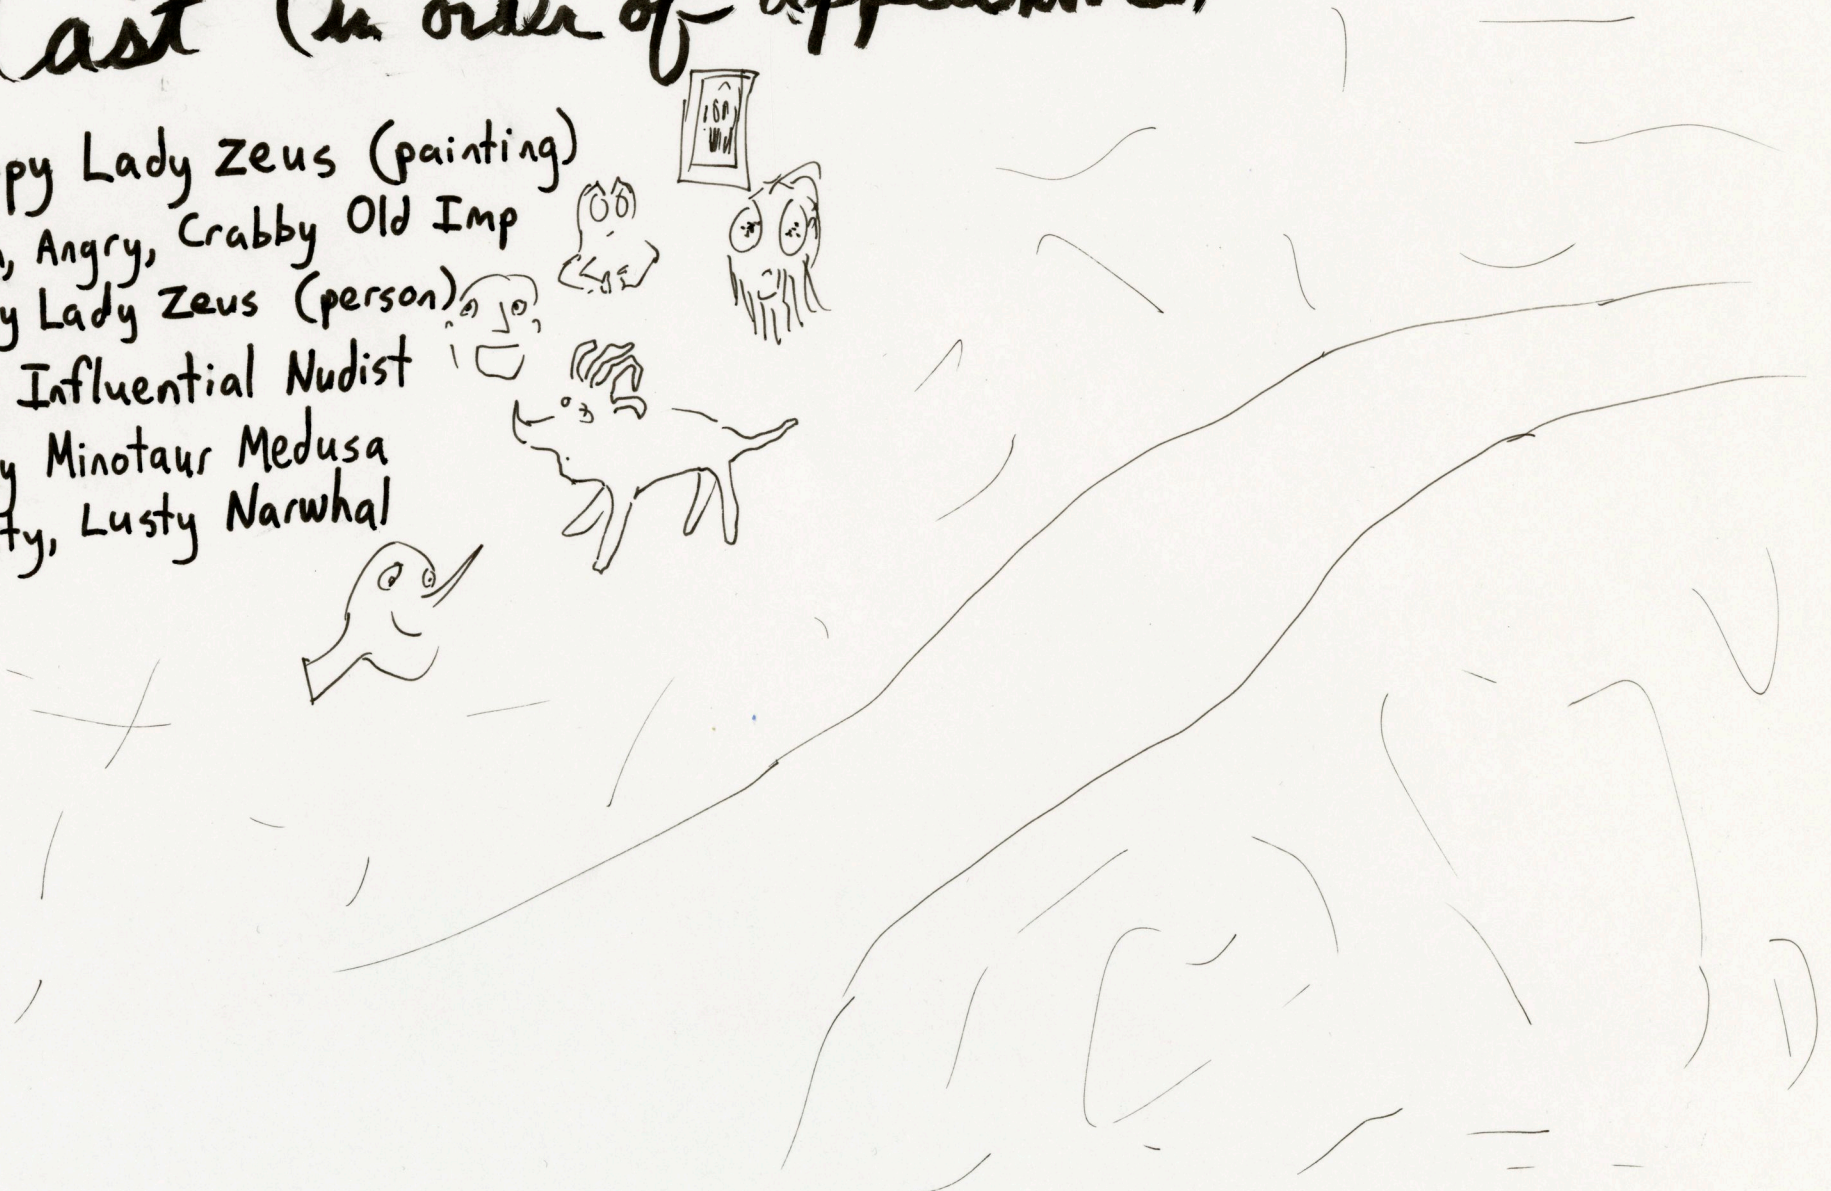 ast (in order of appearance)
py Lady Zeus (painting)
, Angry, Crabby Old Imp
y Lady Zeus (person)
Influential Nudist
y Minotaur Medusa
ty, Lusty Narwhal